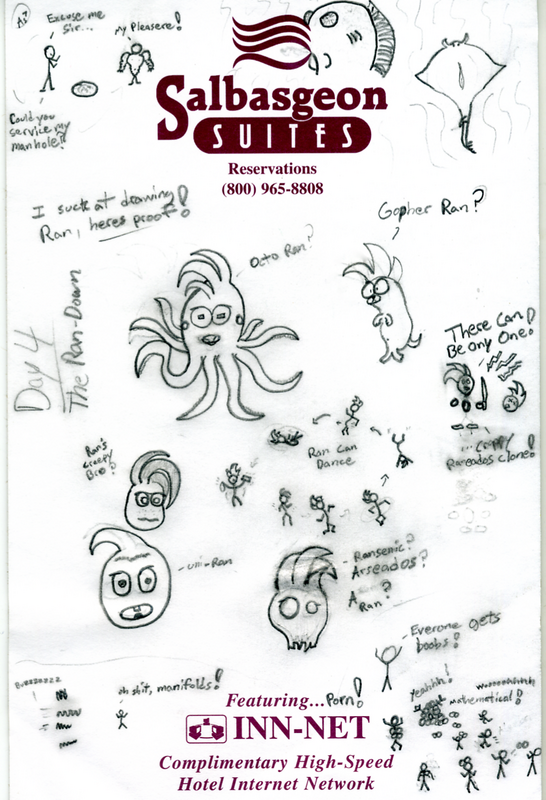 Excuse me
Sir...
My Pleasere!
Could you
service my
manhole?
Salbasgeon
SUITES
Reservations
(800) 965-8808
I suck at drawing
Ran, heres proof!
Octo Ran?
Gopher Ran?
Day 4
The Ran-Down
These can
Be any One!
...Crappy
Raneados clone!
Ran's
creepy
Bro?
Ran Can
Dance
uni-Ran
Ransenic?
Arseados?
A
Ran?
Everone gets
boobs!
Buzzzzzzz
oh shit, manifolds!
Yeahhh!
Mathematical!
Featuring...
Porn!
INN-NET
Complimentary High-Speed
Hotel Internet Network